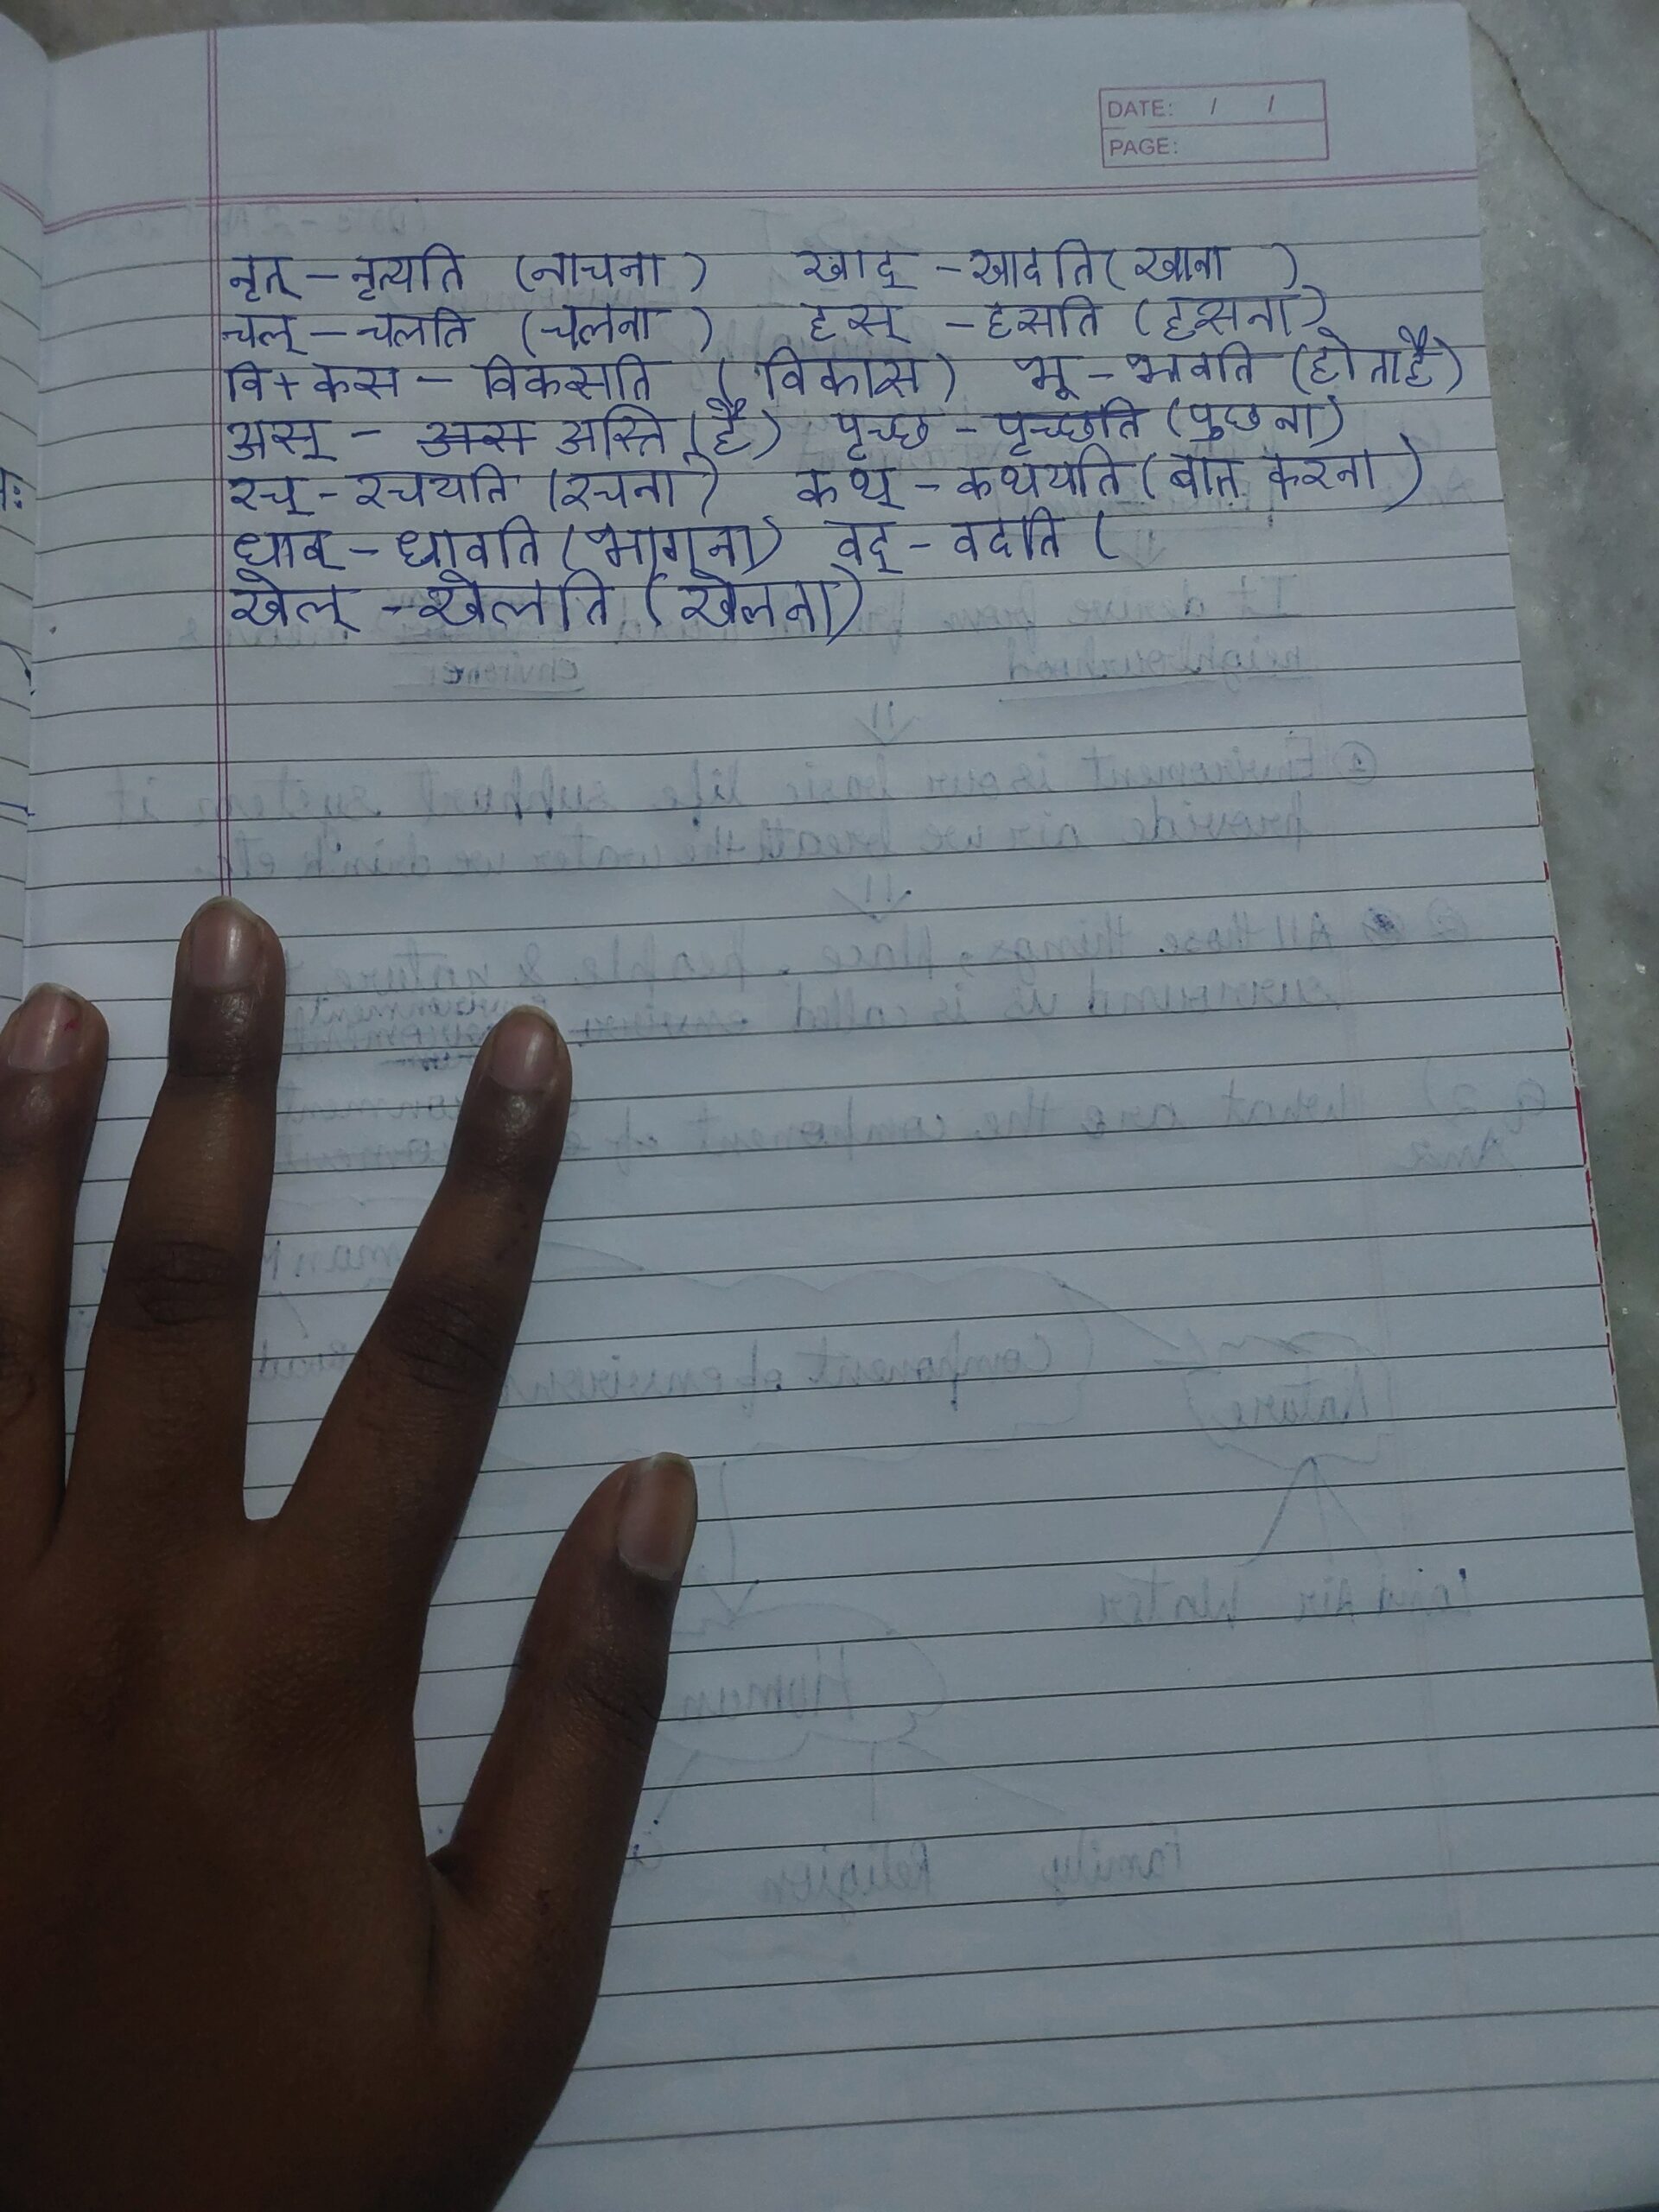 DATE: / /
PAGE:
नृत् - नृत्यति (नाचना) खाद् - खादति (खाना)
चल् - चलति (चलना) हस् - हसति (हसना)
वि + कस - विकसति (विकास) भू - भवति (होता है)
अस् - अस अस्ति (है) पृच्छ - पृच्छति (पुछना)
रच् - रचयति (रचना) कथ् - कथयति (बात करना)
धाव् - धावति (भागना) वद् - वदति (
खेल् - खेलति (खेलना)